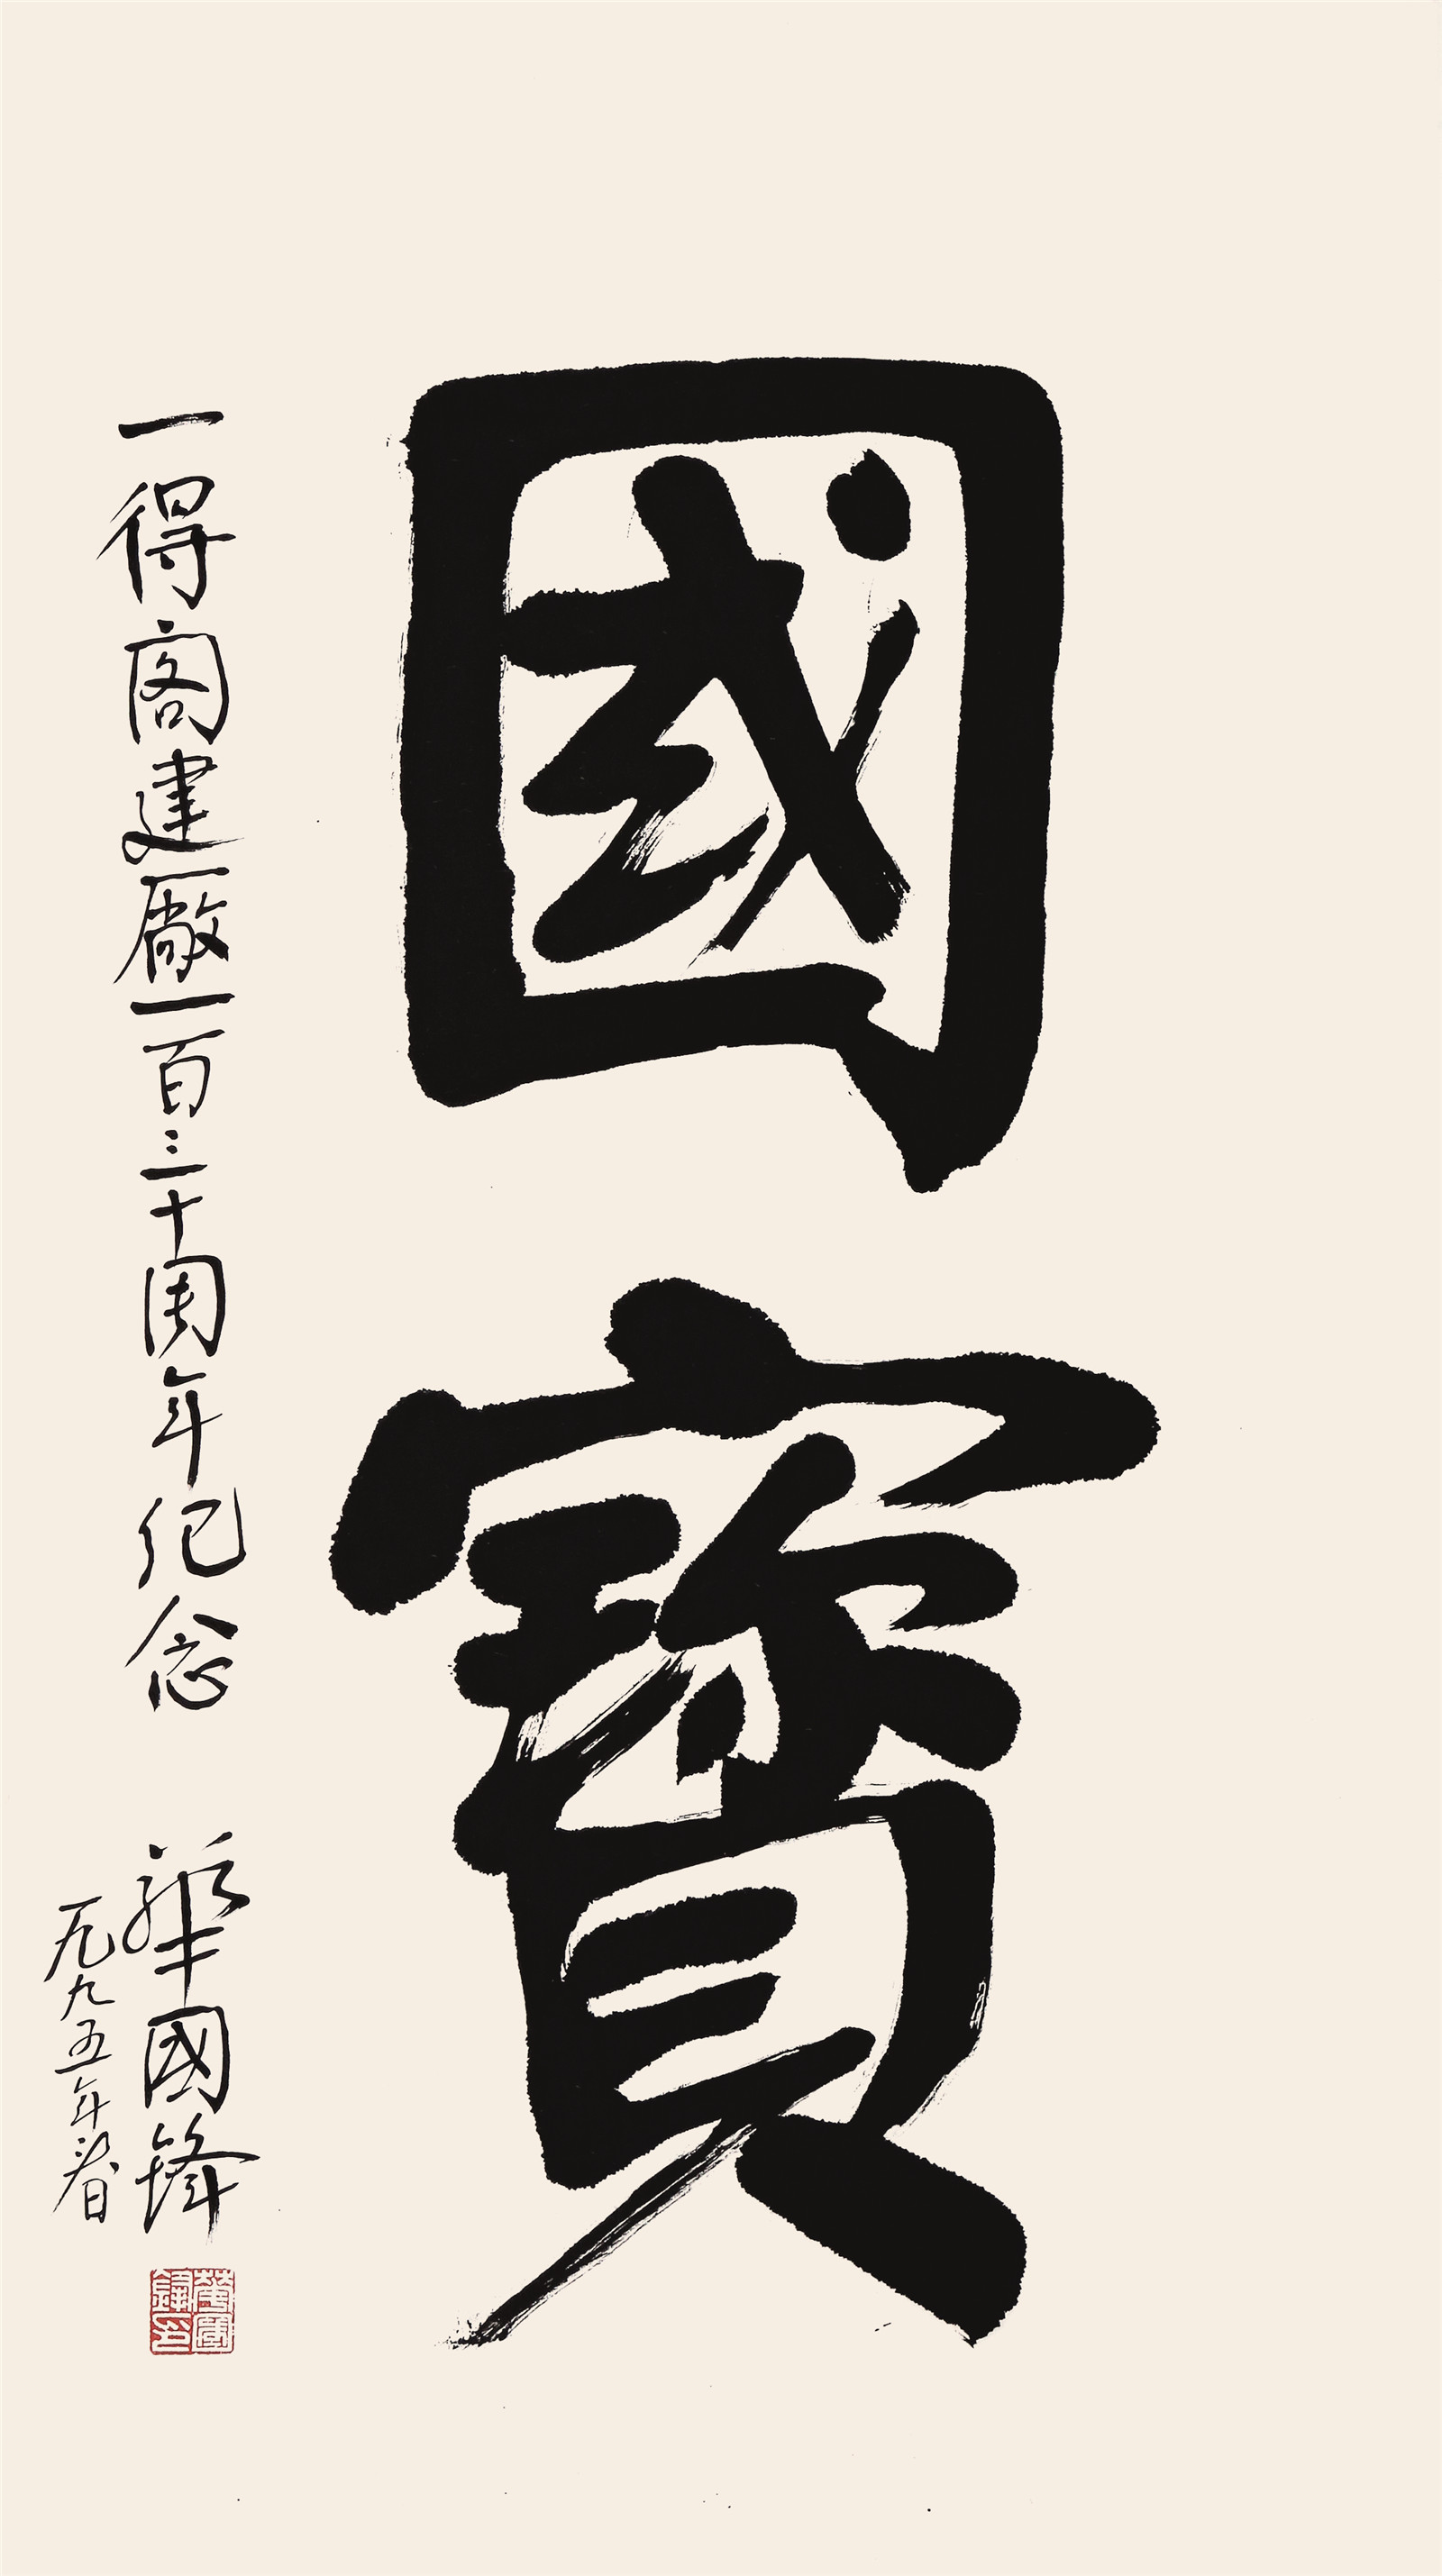 國寶
一得阁建廠一百三十周年纪念
華國鋒
一九九五年春
華國鋒印